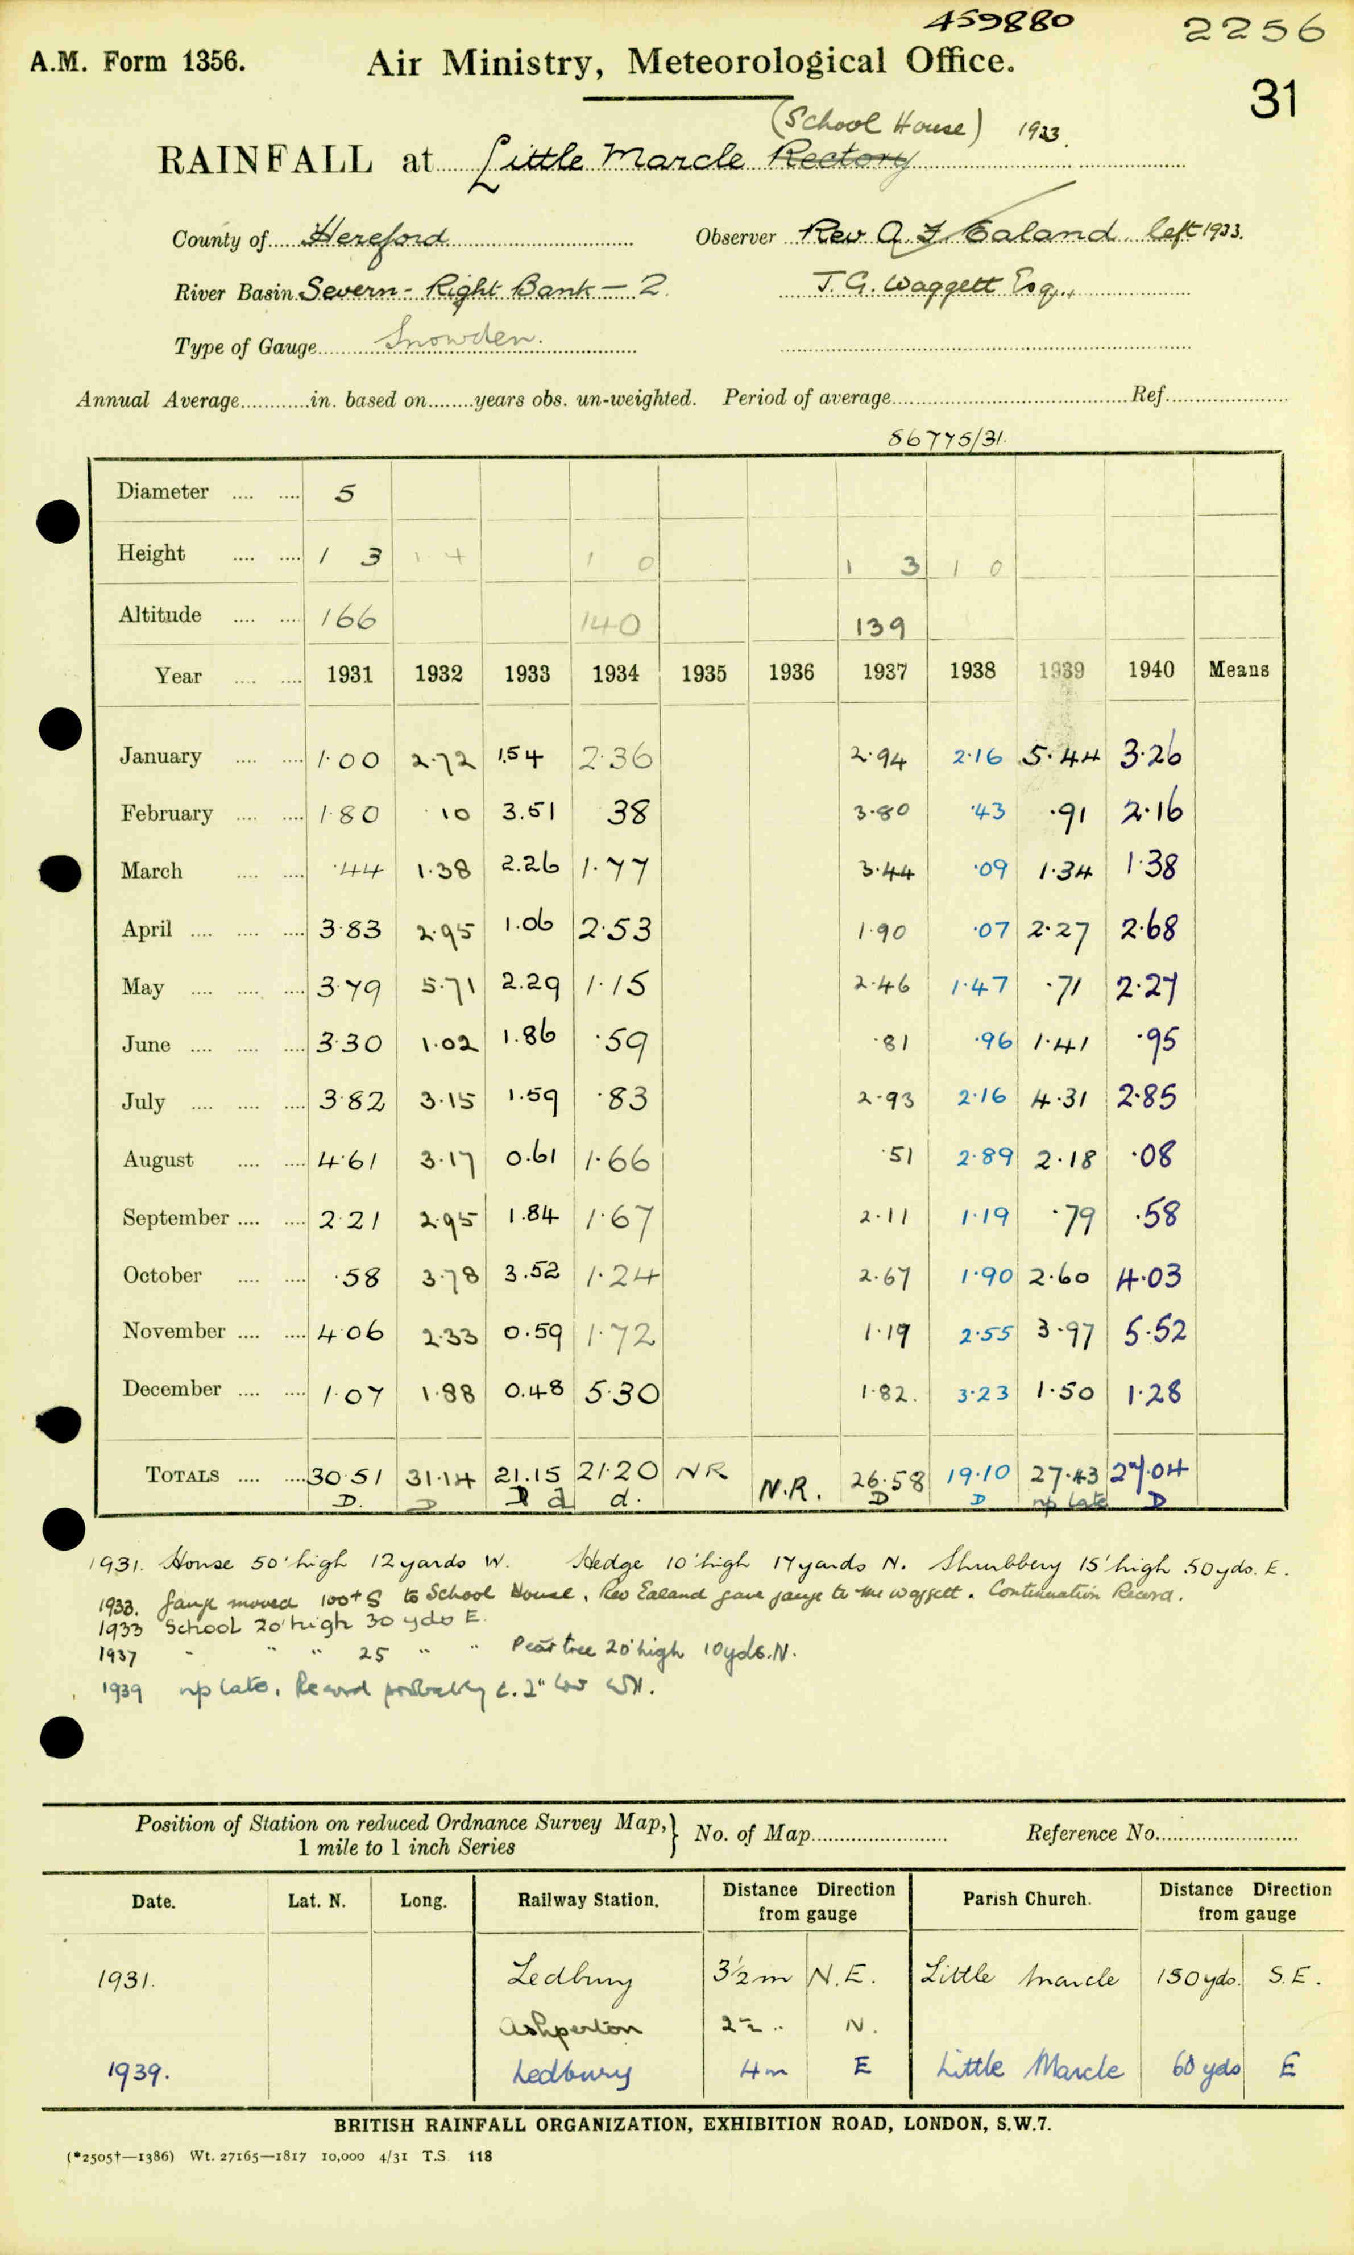 459880 2256
A.M. Form 1356. Air Ministry, Meteorological Office.
31
(School House) 1933.
RAINFALL at Little Marcle Rectory
County of Hereford Observer Rev A. F. Ealand left 1933.
River Basin Severn - Right Bank — 2. J. G. Waggett Esq.,
Type of Gauge Snowden.
Annual Average in. based on years obs. un-weighted. Period of average Ref.
56775/31.
Diameter .... .... 5
Height .... .... 1 3 1 4 1 0 1 3 1 0
Altitude .... .... 166 140 139
Year .... .... 1931 1932 1933 1934 1935 1936 1937 1938 1939 1940 Means
January .... .... 1·00 2·72 1.54 2·36 2·94 2·16 5·44 3·26
February .... .... 1·80 ·10 3.51 38 3·80 ·43 ·91 2·16
March .... .... ·44 1·38 2.26 1·77 3·44 ·09 1·34 1·38
April .... .... .... 3·83 2·95 1.06 2·53 1·90 ·07 2·27 2·68
May .... .... .... 3·79 5·71 2.29 1·15 2·46 1·47 ·71 2·27
June .... .... .... 3·30 1·02 1.86 ·59 ·81 ·96 1·41 ·95
July .... .... .... 3·82 3·15 1.59 ·83 2·93 2·16 4·31 2·85
August .... .... 4·61 3·17 0.61 1·66 ·51 2·89 2·18 ·08
September .... .... 2·21 2·95 1.84 1·67 2·11 1·19 ·79 ·58
October .... .... ·58 3·78 3.52 1·24 2·67 1·90 2·60 4·03
November .... .... 4·06 2·33 0.59 1·72 1·19 2·55 3·97 5·52
December .... .... 1·07 1·88 0.48 5·30 1·82. 3·23 1·50 1·28
TOTALS .... .... 30·51 31·14 21.15 21·20 NR N.R. 26·58 19·10 27·43 27·04
D. D d d. D D np late D
1931. House 50' high 12 yards W. Hedge 10' high 17 yards N. Shrubbery 15' high 50 yds. E.
1933. Gauge moved 100+ S to School House. Rev Ealand gave gauge to Mr Waggett. Continuation Record.
1933 School 20' high 30 yds E.
1937 " " " 25 " " Pear tree 20' high 10 yds. N.
1939 np late. Record probably c. 2" low
Position of Station on reduced Ordnance Survey Map,} No. of Map Reference No.
1 mile to 1 inch Series
Date. Lat. N. Long. Railway Station. Distance Direction from gauge Parish Church. Distance Direction from gauge
1931. Ledbury 3½ m N.E. Little Marcle 150 yds. S.E.
Ashperton 2½ " N.
1939. Ledbury 4m E Little Marcle 60 yds E
BRITISH RAINFALL ORGANIZATION, EXHIBITION ROAD, LONDON, S.W.7.
(*2505†—1386) Wt. 27165—1817 10,000 4/31 T.S. 118